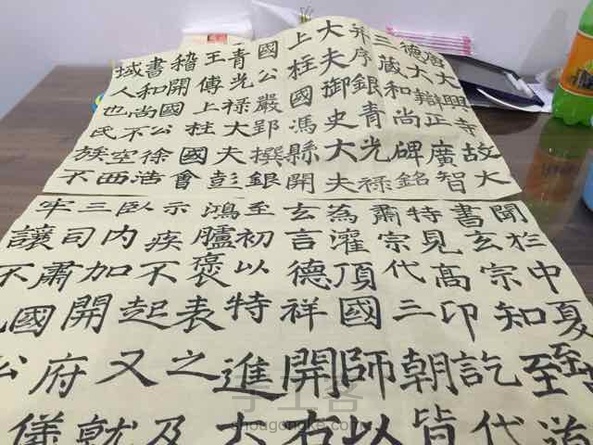 唐大興寺故大
德大辯正廣智
三藏和尚碑銘
并序銀青光祿
大夫御史大夫
上柱國馮縣開
國公嚴郢撰銀
青光祿大夫彭
王傅上柱國會
稽開國公徐浩
書和尚不空西
域人也氏族不
聞於中夏
書玄宗知至道
特見高印訖代
肅宗代三朝皆
為灌頂國師以
玄言德祥開右
至初以特進大
鴻臚褒表之及
示疾不起又就
臥內加開府儀
三司肅國公
牢讓不